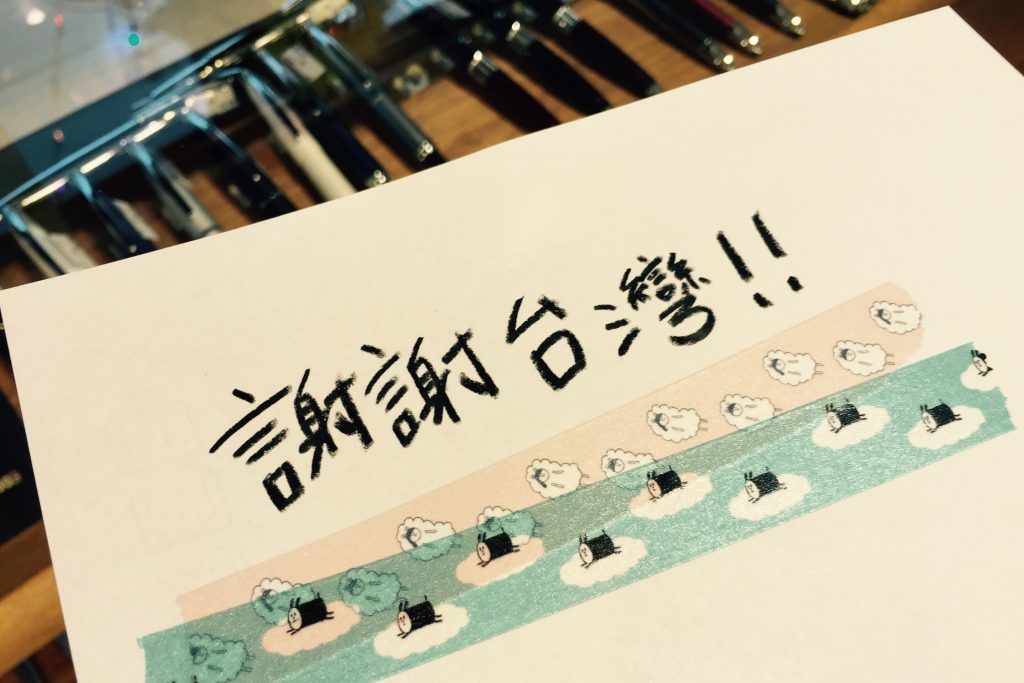 謝謝台灣!!